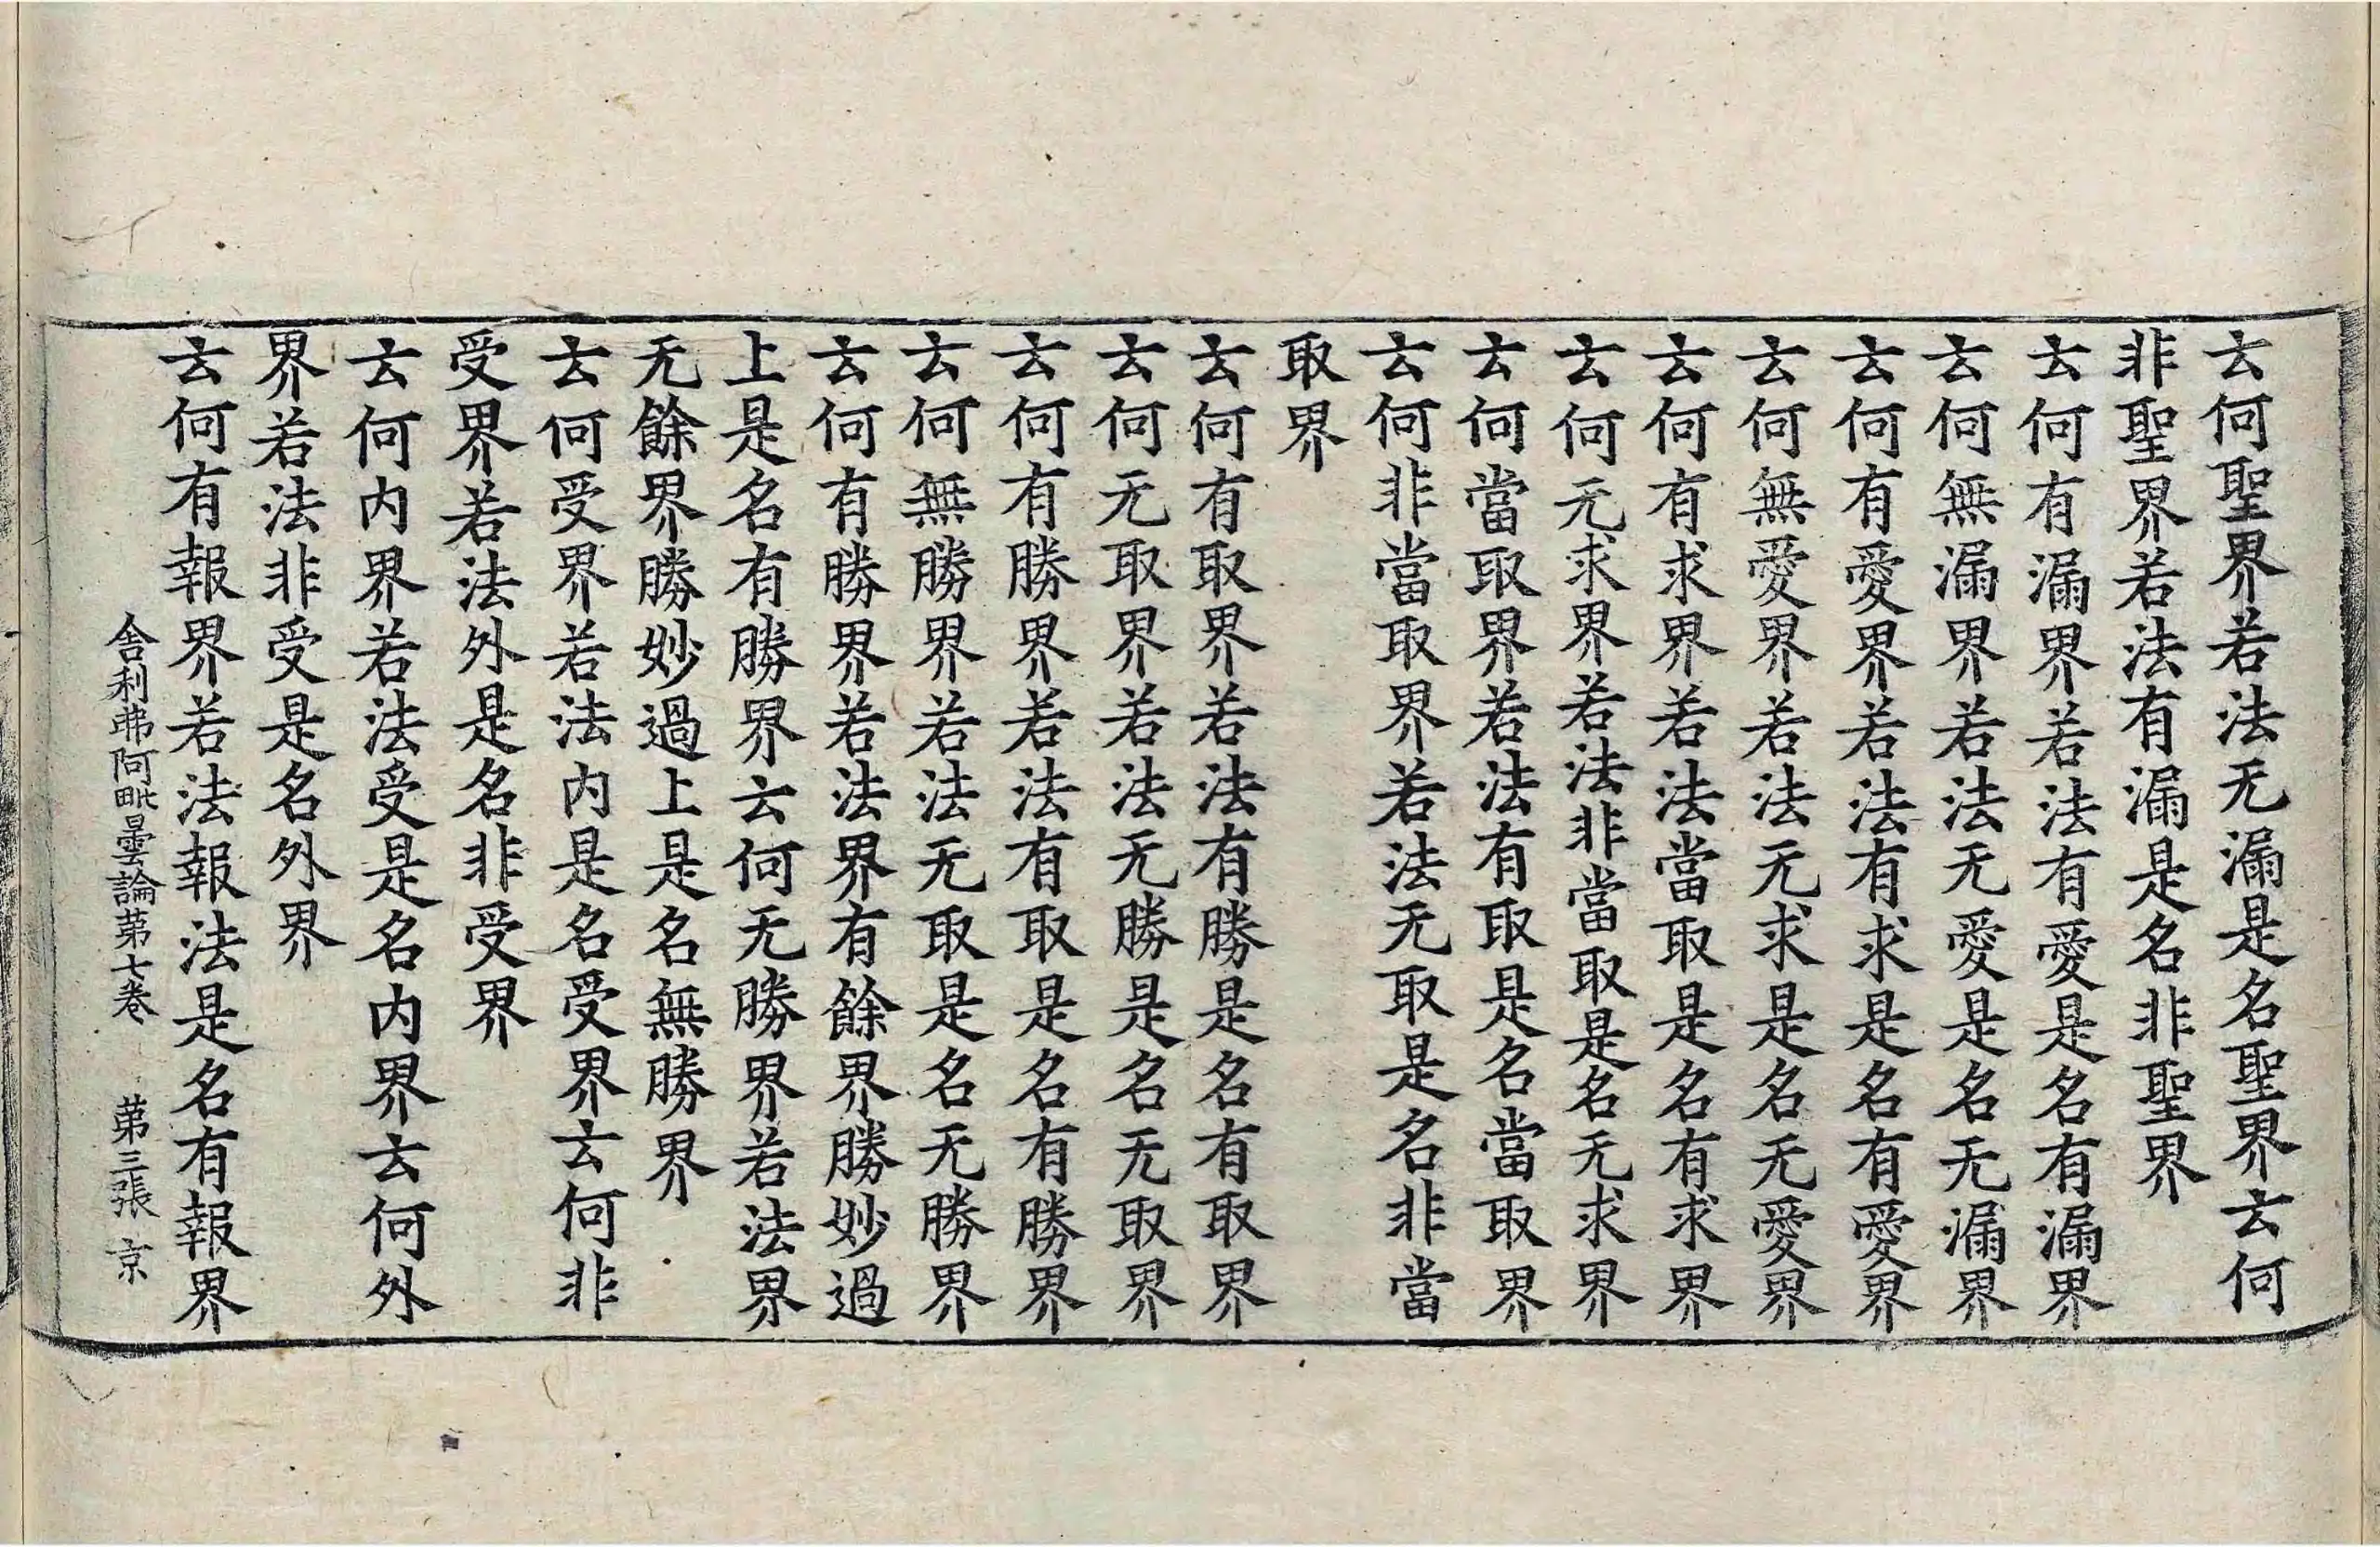 云何聖界若法无漏是名聖界云何
非聖界若法有漏是名非聖界
云何有漏界若法有愛是名有漏界
云何無漏界若法无愛是名无漏界
云何有愛界若法有求是名有愛界
云何無愛界若法无求是名无愛界
云何有求界若法當取是名有求界
云何无求界若法非當取是名无求界
云何當取界若法有取是名當取界
云何非當取界若法无取是名非當
取界
云何有取界若法有勝是名有取界
云何无取界若法无勝是名无取界
云何有勝界若法有取是名有勝界
云何無勝界若法无取是名无勝界
云何有勝界若法界有餘界勝妙過
上是名有勝界云何无勝界若法界
无餘界勝妙過上是名無勝界
云何受界若法内是名受界云何非
受界若法外是名非受界
云何内界若法受是名内界云何外
界若法非受是名外界
云何有報界若法報法是名有報界
舎利弗阿毗曇論苐七卷 苐三張 京